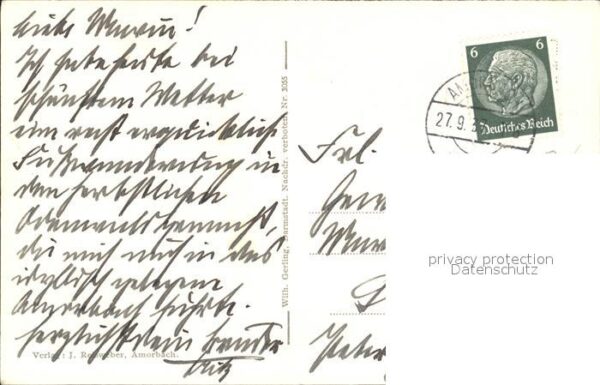 Liebe Maria!
Ich habe heute bei
schönstem Wetter
eine recht erquickliche
Fußwanderung in
den herbstlichen
Odenwald gemacht,
die mich auch in das
idyllisch gelegene
Amorbach führte.
Herzlichst dein Bruder
Fritz
Verlag: J. Amorbach.
Wilh. Gerling, Darmstadt. Nachdr. verboten. Nr. 3055
6 6
Deutsches Reich
27.9.3
Frl.
Peter
privacy protection
Datenschutz